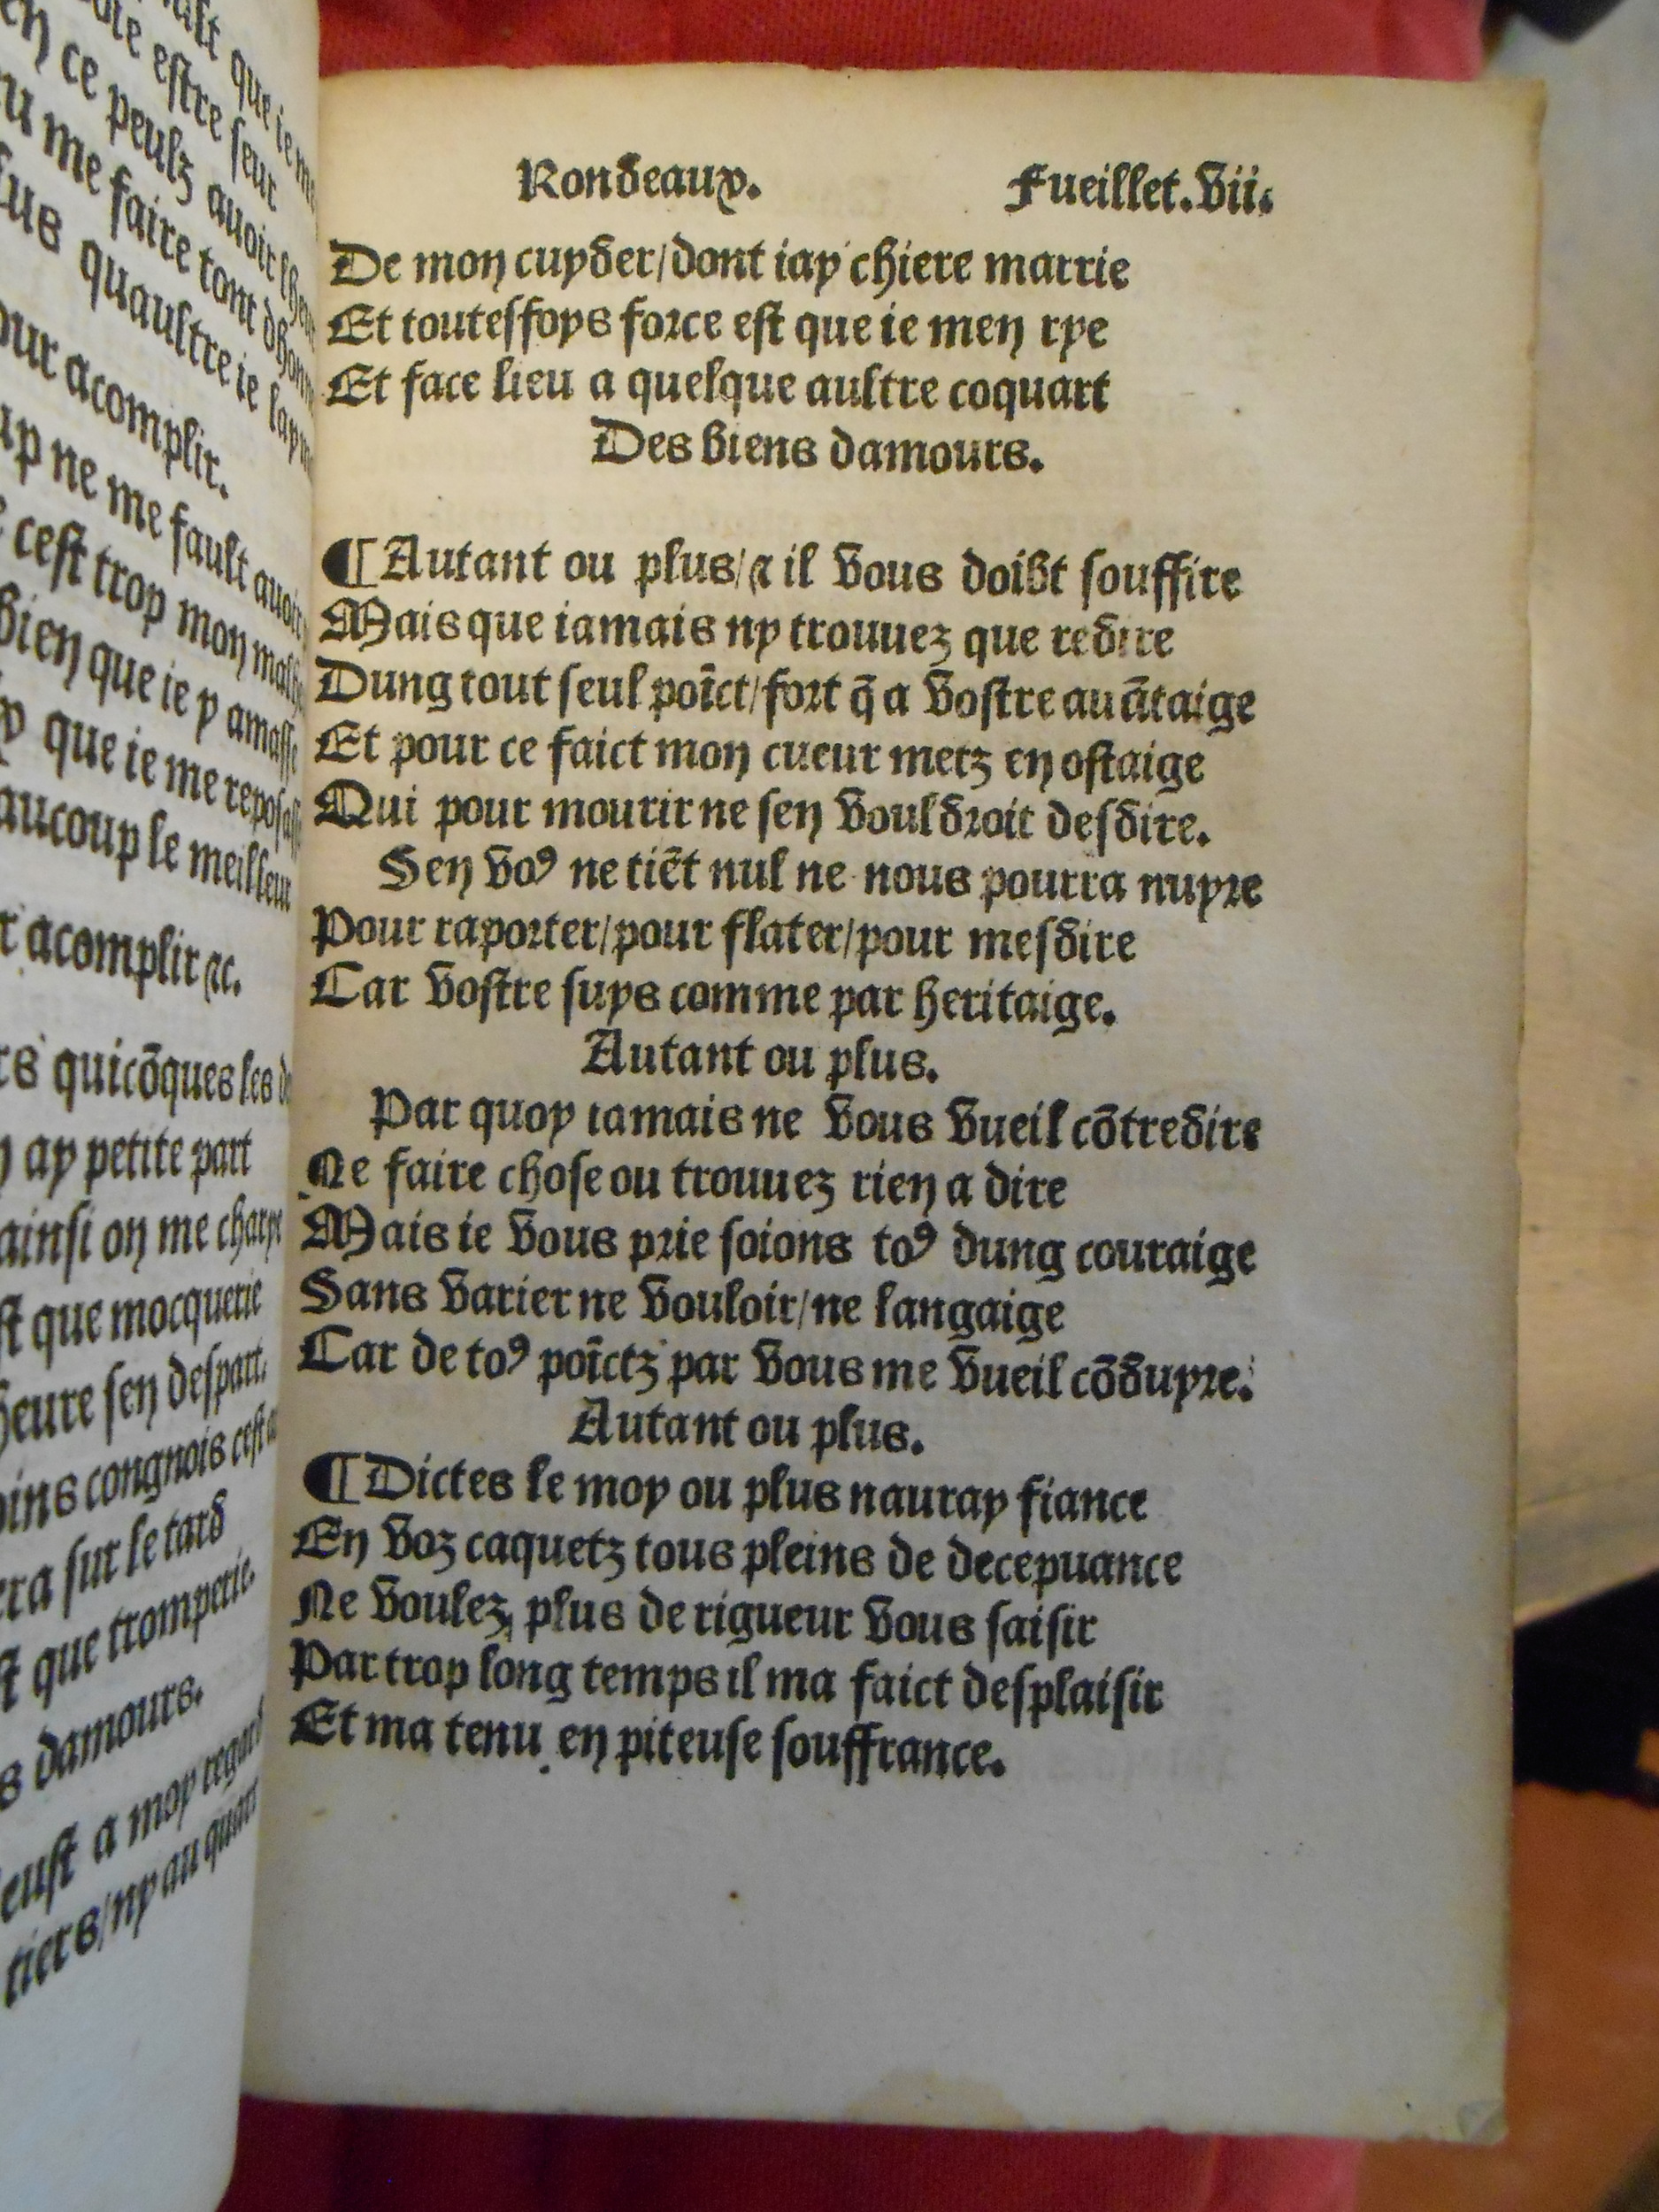 ust que ie
estre seur
en ce peulz auoir
me faire tont dhon
sus quaultre ie
our acomplir.
ne me fault auoir
cest trop mon
bien que ie y amasse
que ie me repos
aucoup le meilleur
acomplir ⁊c.
rs quicōques les
ay petite part
ainsi on me charge
st que mocquerie
heure sen despart.
oins congnois cest
era sur le tard
st que tromperie.
s damours.
eust a moy regard
tiers/ny au quart
Rondeaux. Fueillet.vii.
De mon cuyder/dont iay chiere marrie
Et toutesfoys force est que ie men rye
Et face lieu a quelque aultre coquart
Des biens damours.
¶Autant ou plus/⁊ il vous doibt souffire
Mais que iamais ny trouuez que redire
Dung tout seul poīct/fort q̄ a vostre auātaige
Et pour ce faict mon cueur metz en ostaige
Qui pour mourir ne sen vouldroit desdire.
Sen voꝰ ne tiēt nul ne nous pourra nuyre
Pour raporter/pour flater/pour mesdire
Car vostre suys comme par heritaige.
Autant ou plus.
Par quoy iamais ne vous vueil cōtredire
Ne faire chose ou trouuez rien a dire
Mais ie vous prie soions toꝰ dung couraige
Sans varier ne vouloir/ne langaige
Car de toꝰ poīctz par vous me vueil cōduyre.
Autant ou plus.
¶Dictes le moy ou plus nauray fiance
En voz caquetz tous pleins de decepuance
Ne voulez plus de rigueur vous saisir
Par trop long temps il ma faict desplaisir
Et ma tenu en piteuse souffrance.